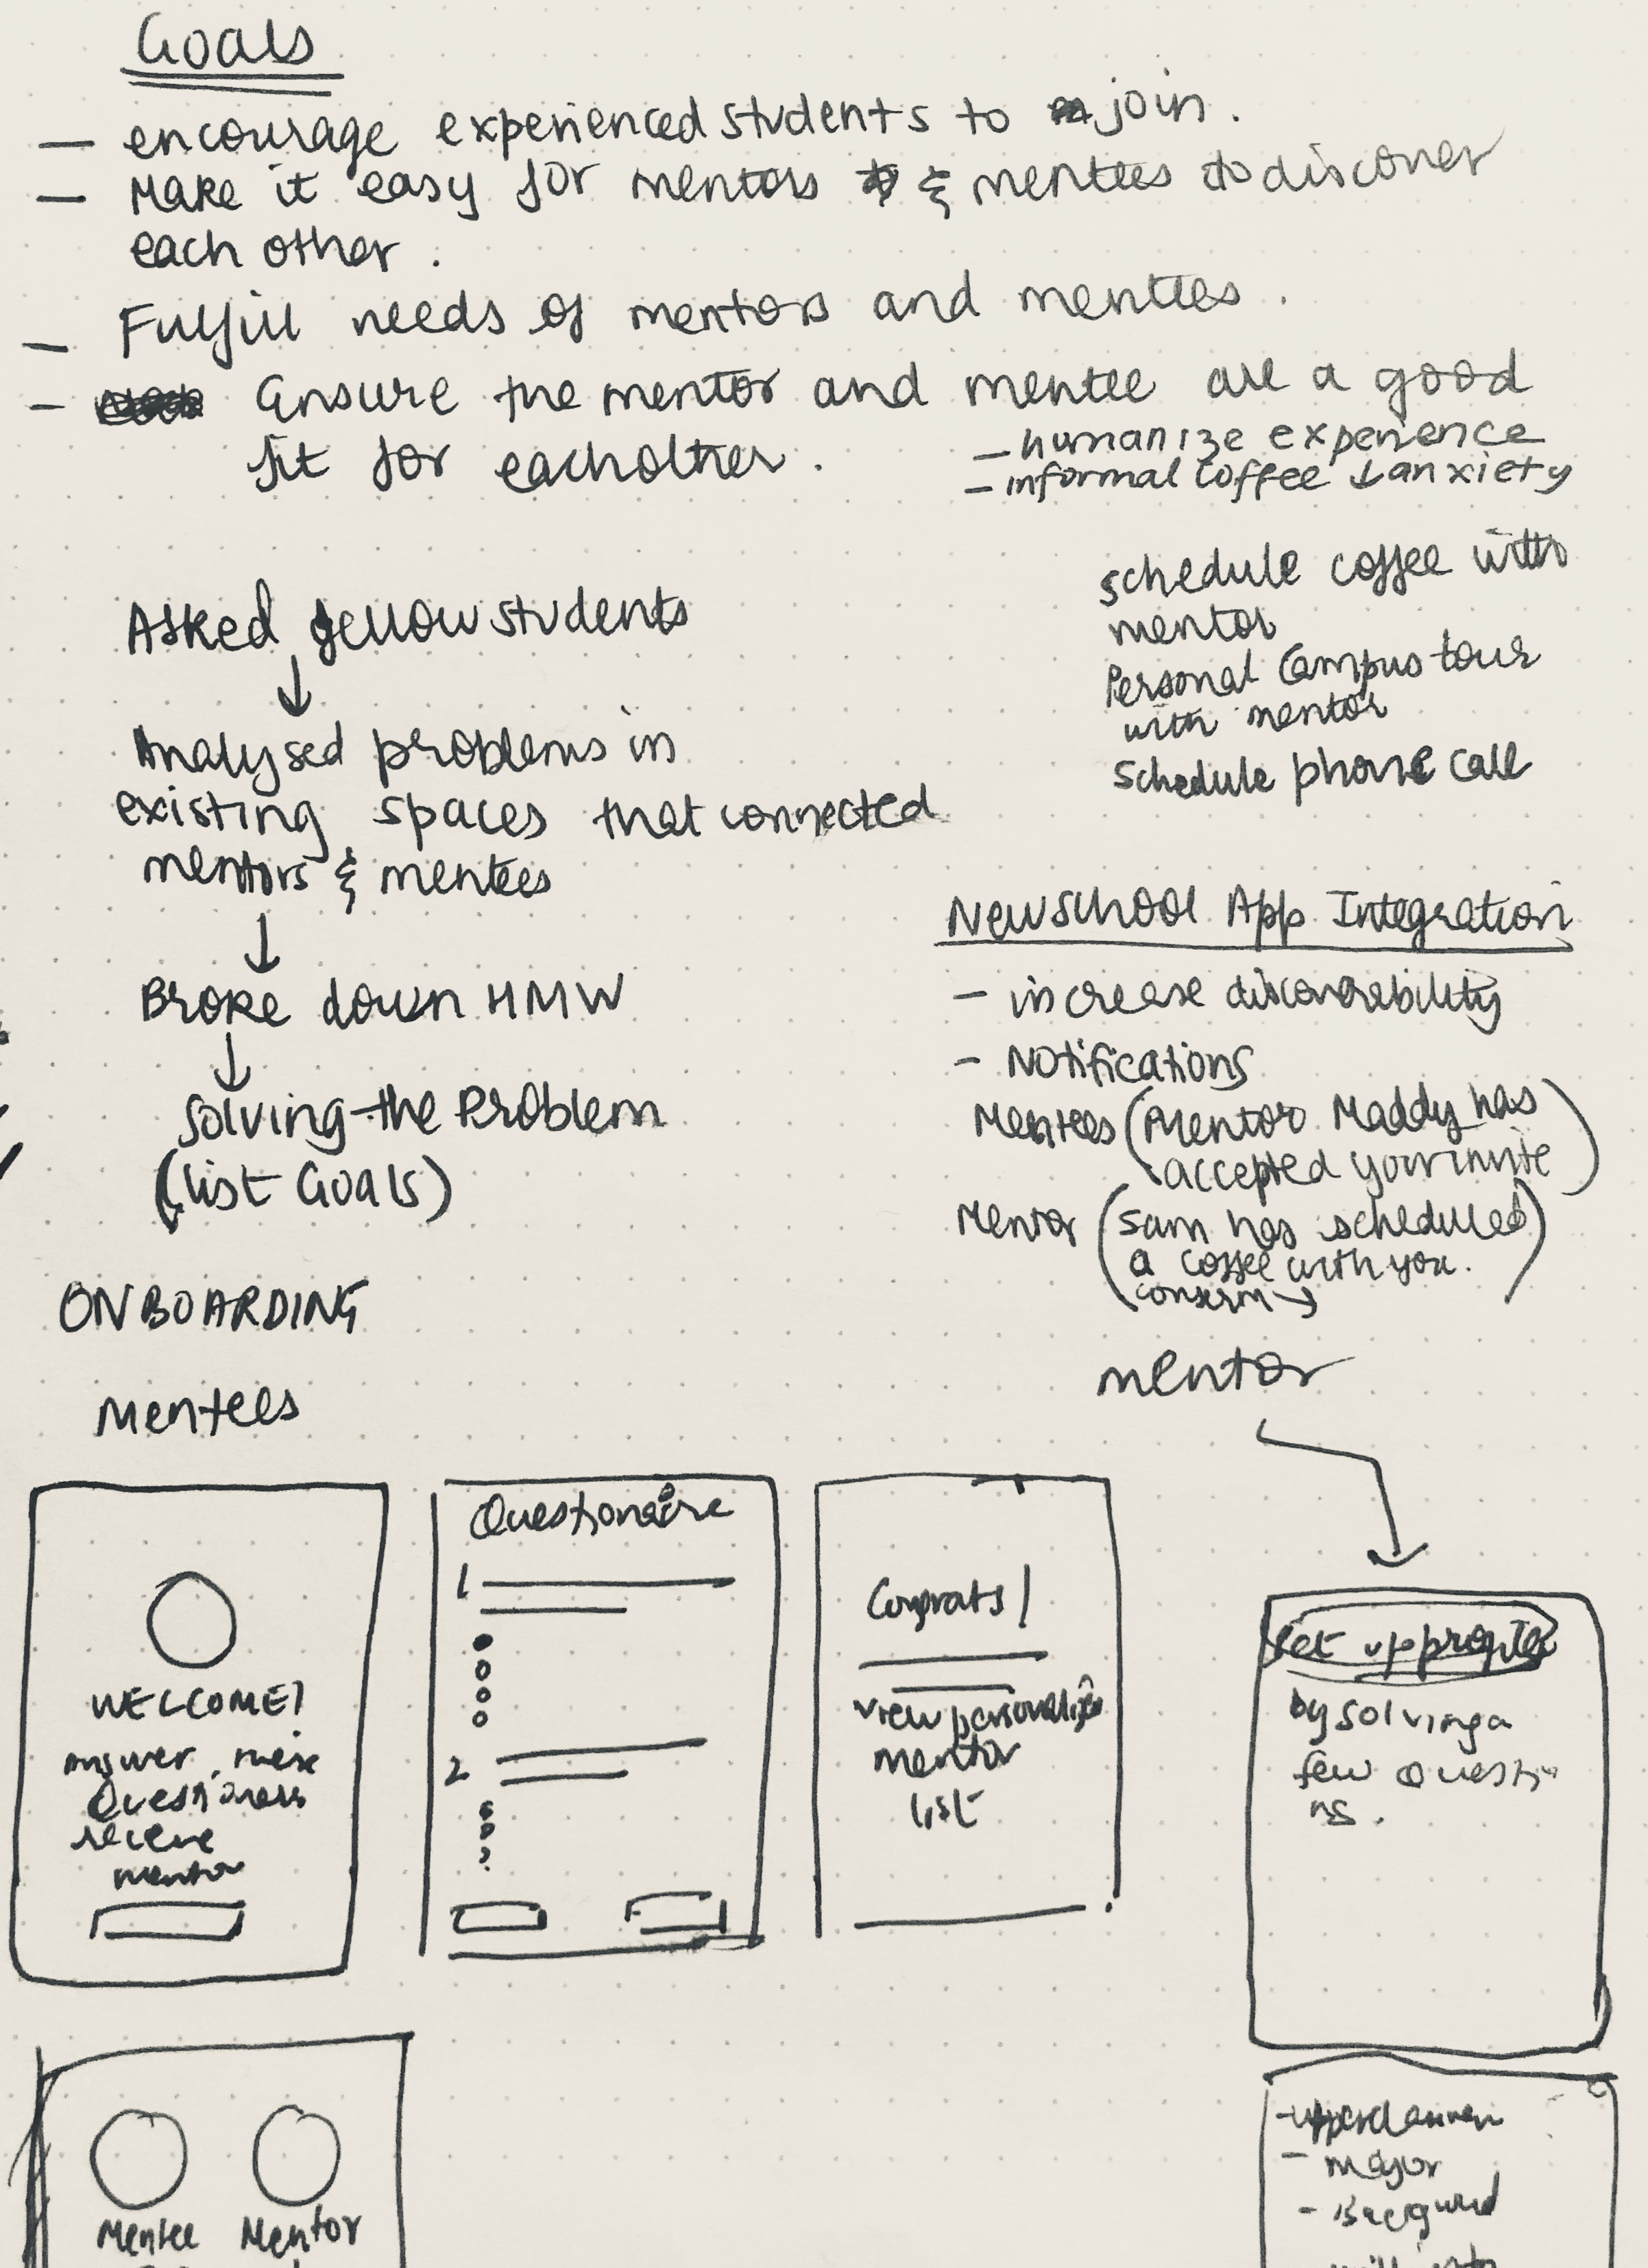 Goals
— encourage experienced students to join.
— Make it easy for mentors & mentees to discover
each other.
— Fulfill needs of mentors and mentees.
— Ensure the mentor and mentee are a good
fit for eachother.
— humanize experience
— informal coffee ↓ anxiety
schedule coffee with
mentor
Personal Campus tour
with mentor
Schedule phone call
Asked fellow students
↓
Analysed problems in
existing spaces that connected
mentors & mentees
↓
Broke down HMW
↓
Solving the Problem
(list Goals)
Newschool App Integration
— increase discoverability
— Notifications
Mentees (Mentor Maddy has
accepted your invite)
Mentor (Sam has scheduled
a coffee with you.
confirm →)
ONBOARDING
Mentees
mentor
WELCOME!
answer these
Questions
receive
mentor
Questionaire
1
2
Congrats!
view personalized
mentor
list
Set up profile
by solving a
few Questio
ns.
Mentee Mentor
- upperclassmen
- major
- Background